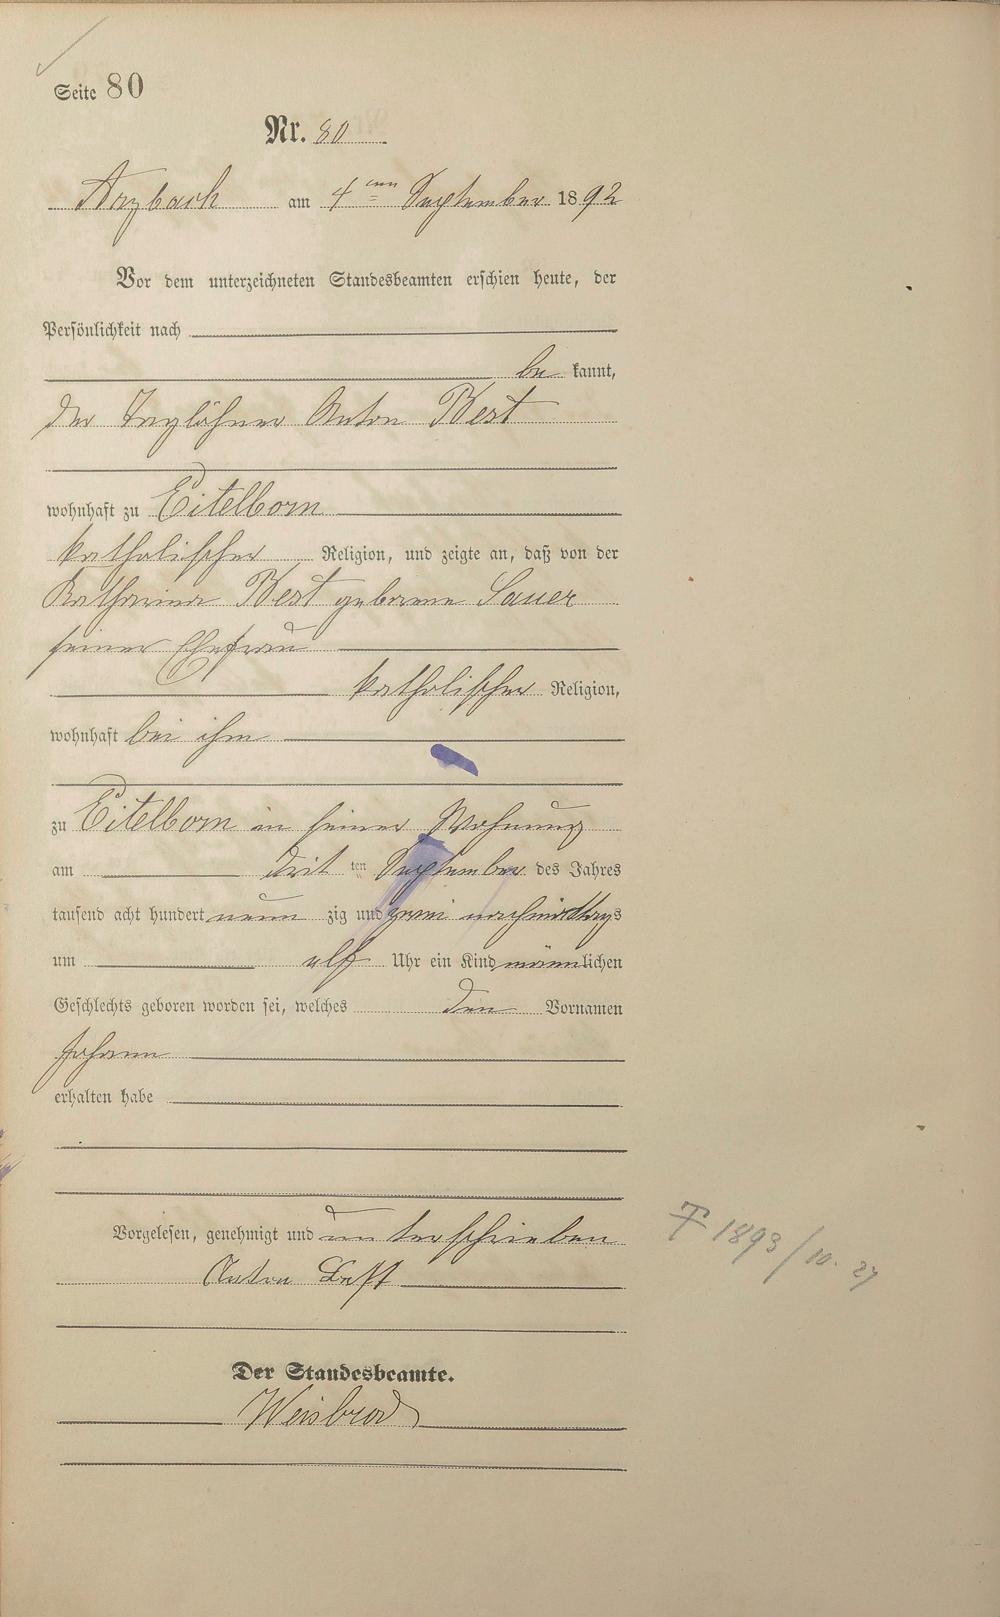 Seite 80
Nr. 80
Arzbach am 4ten September 1892
Vor dem unterzeichneten Standesbeamten erschien heute, der
Persönlichkeit nach
be kannt,
der Taglöhner Anton Best
wohnhaft zu Eitelborn
katholischer Religion, und zeigte an, daß von der
Katharina Best geborene Sauer
seiner Ehefrau
katholischer Religion,
wohnhaft bei ihm
zu Eitelborn in seiner Wohnung
am drit ten September des Jahres
tausend acht hundert neun zig und zwei nachmittags
um elf Uhr ein Kind männlichen
Geschlechts geboren worden sei, welches den Vornamen
Johann
erhalten habe
Vorgelesen, genehmigt und unterschrieben
Anton Best
Der Standesbeamte.
Weisbrod
† 1893/10. 27